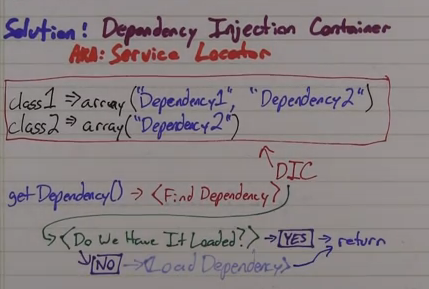 Solution! Dependency Injection Container
AKA: Service Locator
class1 => array("Dependency1", "Dependency2")
class2 => array("Dependency2")
DIC
getDependency() → <Find Dependency>
<Do We Have It Loaded?> → YES → return
NO → <Load Dependency>